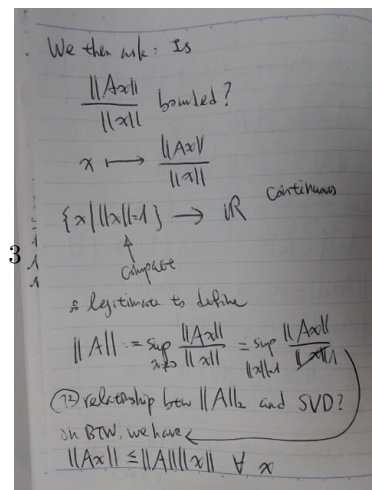 We then ask: Is
||Ax|| / ||x|| bounded?
x ⟼ ||Ax|| / ||x||
{x | ||x||=1} → ℝ continuous
↑
compact
3
so legitimate to define
||A|| := sup_{x≠0} ||Ax|| / ||x|| = sup_{||x||=1} ||Ax|| / ||x||
relationship btw ||A||₂ and SVD?
BTW, we have
||Ax|| ≤ ||A|| ||x|| ∀ x